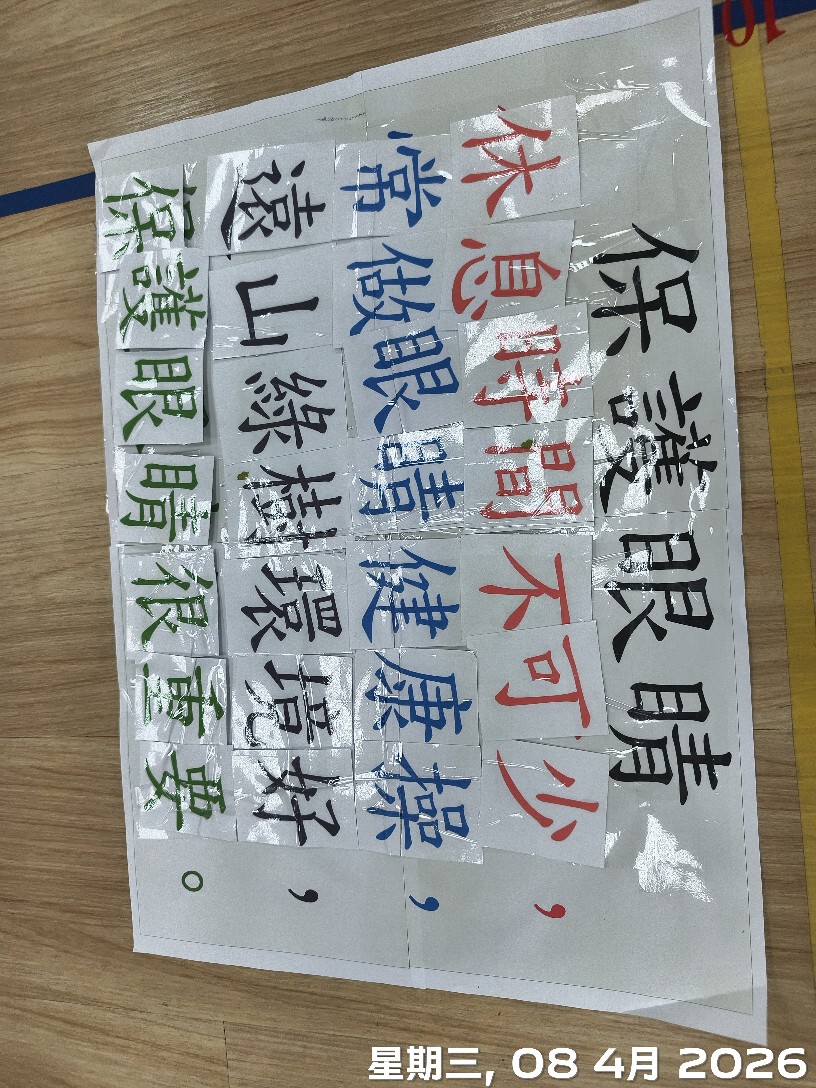 保護眼睛
休息時間不可少，
常做眼睛健康操，
遠山綠樹環境好，
保護眼睛很重要。
10
星期三, 08 4月 2026